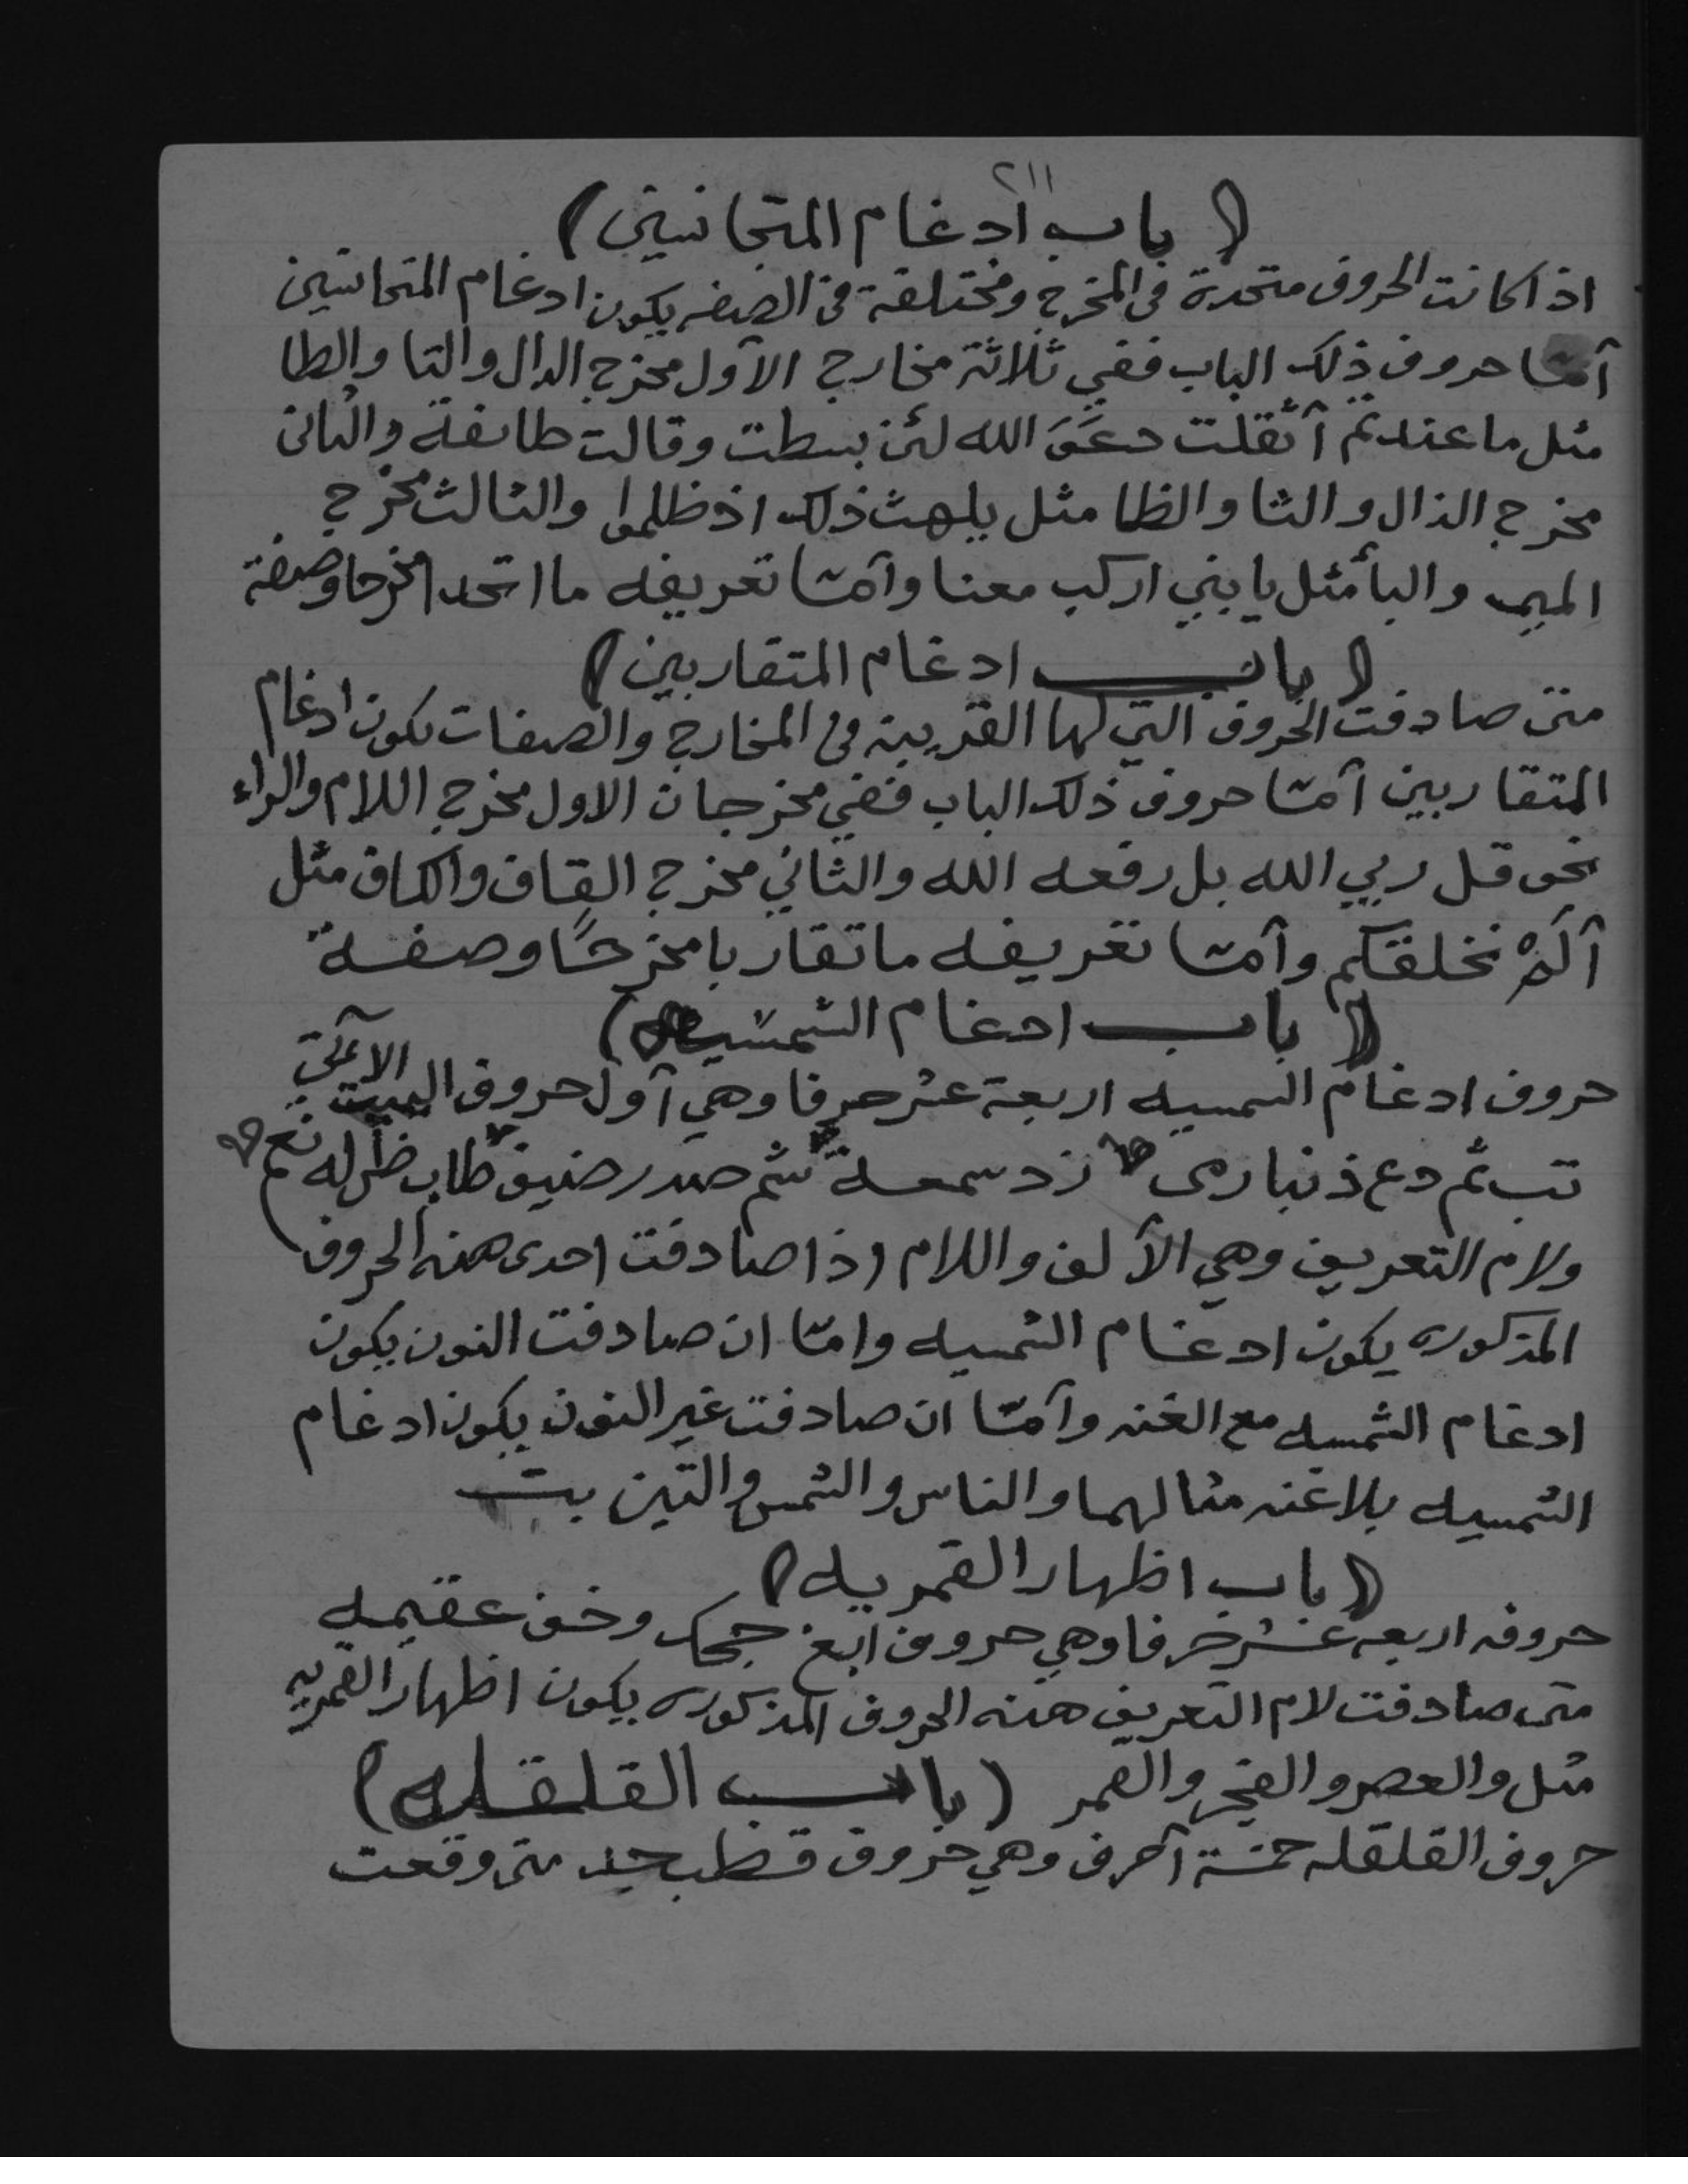 ٢١١
( باب ادغام المتجانسين )
اذا كانت الحروف متحدة في المخرج ومختلفة في الصفه يكون ادغام المتجانسين
آمّا حروف ذلك الباب ففي ثلاثة مخارج الآول مخرج الدال والتا والطا
مثل ما عندتم آثقلت دعوَ الله لئن بسطت وقالت طائفة والثاني
مخرج الذال والثا والظا مثل يلهث ذلك اذ ظلموا والثالث مخرج
الميم والبأ مثل يا بني اركب معنا وآمّا تعريفه ما اتحدا مخرجا وصفة
( باب ادغام المتقاربين )
متى صادفت الحروف التي لها القريبة في المخارج والصفات يكون ادغام
المتقاربين آمّا حروف ذلك الباب ففي مخرجان الاول مخرج اللام والراء
نحو قل ربي الله بل رفعه الله والثاني مخرج القاف والكاف مثل
آلم نخلقكم وآمّا تعريفه ما تقاربا مخرجًا وصفة
( باب ادغام الشمسيه )
حروف ادغام الشمسيه اربعة عشر حرفا وهي آول حروف البيت الآتي
تب ثم دع ذنبا رمى زد سمعة شم صدر ضيف طاب ظل له نعم
ولام التعريف وهي الآلف واللام اذا صادفت احدى هذه الحروف
المذكوره يكون ادغام الشمسيه وامّا ان صادفت النون يكون
ادغام الشمسيه مع الغنه وآمّا ان صادفت غير النون يكون ادغام
الشمسيه بلا غنه مثالهما والناس والشمس والتين
( باب اظهار القمريه )
حروفه اربعه عشر حرفا وهي حروف ابغ حجك وخف عقيمه
متى صادفت لام التعريف هذه الحروف المذكوره يكون اظهار القمريه
مثل والعصر والفجر والقمر ( باب القلقله )
حروف القلقله خمسة آحرف وهي حروف قطب جد متى وقعت